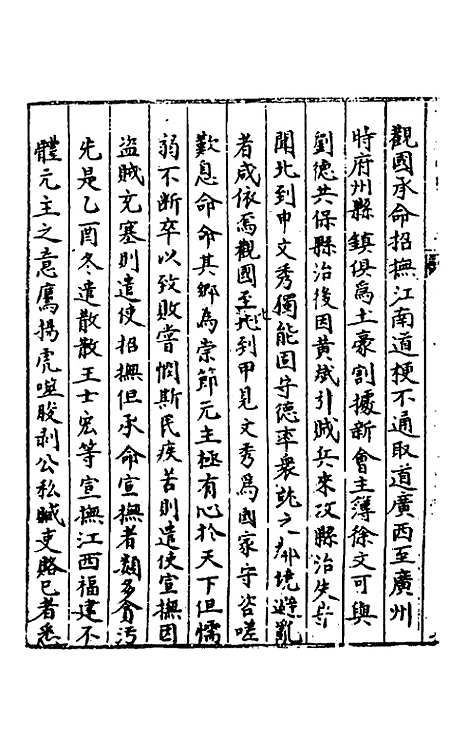 觀國承命招撫江南道梗不通取道廣西至廣州
時府州縣鎮俱爲土豪割據新會主簿徐文可與
劉德共保縣治後因黄斌引賊兵來攻縣治失守
聞北到申文秀獨能固守德率衆就之鄰境避亂
者咸依焉觀國至北到甲見文秀爲國家守咨嗟
歎息命命其鄉爲崇節元主極有心於天下但懦
弱不斷卒以致敗嘗憫斯民疾苦則遣使宣撫因
盗賊充塞則遣使招撫但承命宣撫者類多貪汚
先是乙酉冬遣散散王士宏等宣撫江西福建不
體元主之意鷹揚虎噬朘剥公私贓吏賂已者悉